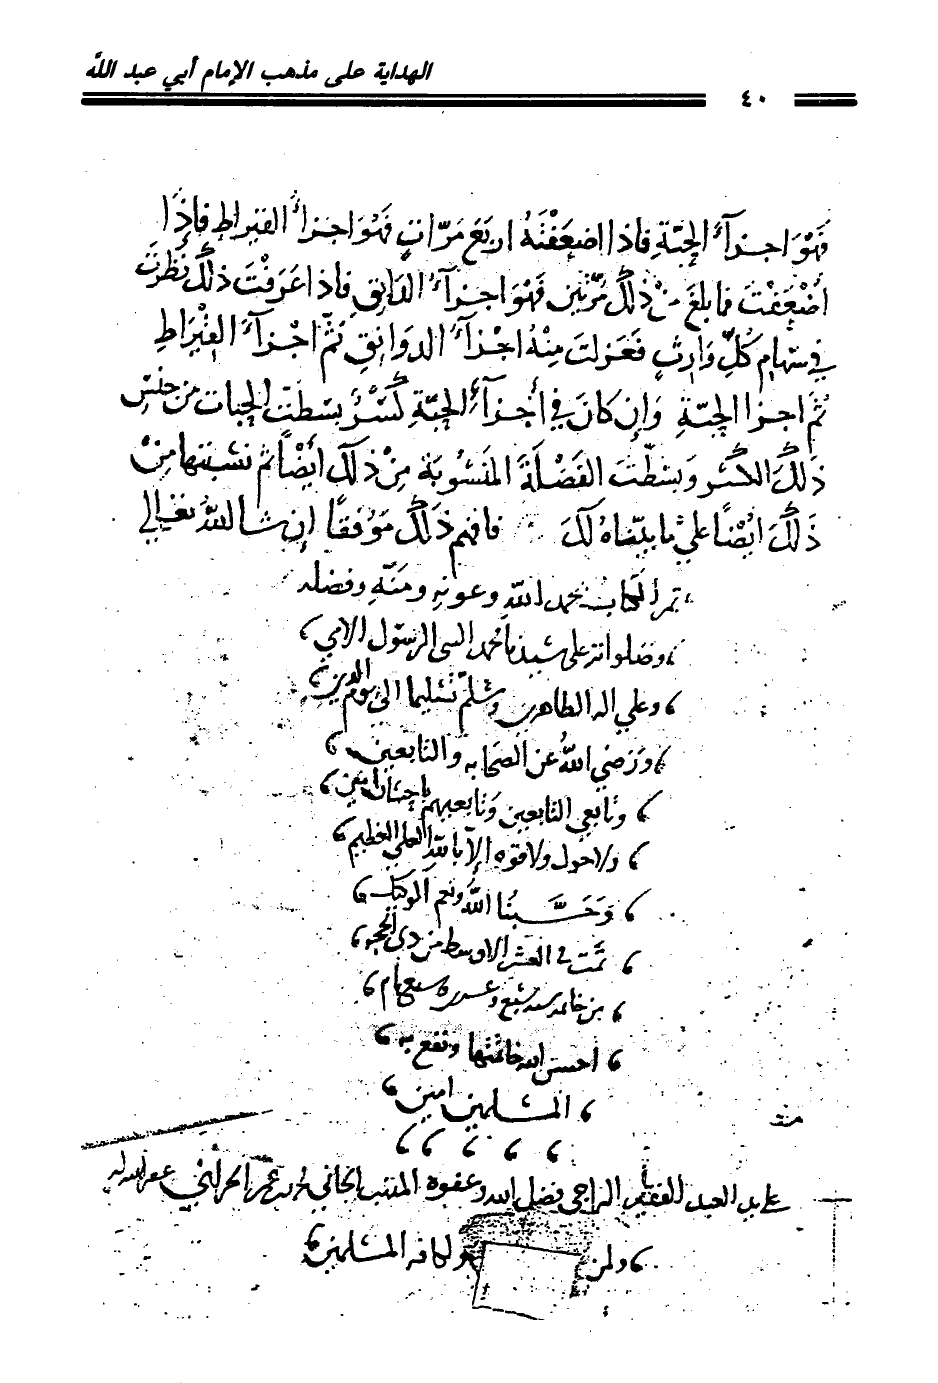 الهداية على مذهب الإمام أبي عبد الله
٤٠
فَهْوَ اجزآءُ الحبّةِ فاذا اضعَفْتَهُ اربَعَ مَرّاتٍ فَهْوَ اجزاءُ القيراطِ فإذا
أضْعَفْتَ ما بلغَ مِنْ ذلكَ مرّتين فَهْوَ اجزآءُ الدانِقِ فاذا عَرَفْتَ ذلكَ نظَرْتَ
في سهام كُلّ وَارِثٍ فَعَزلتَ مِنْهُ اجْزآءُ الدوانِقِ ثمّ اجْزآءُ القيْراطِ
ثم اجزا الحبّةِ وَاِن كانَ في أجزآءِ الحبّةِ كَسْرٌ بسَطتَ الحبات من جنْس
ذلكَ الكسْر وَبسَطتَ الفَضْلَةَ المَنسُوبَة مِنْ ذلكَ ايْضًا ثم نسَبتها مِنْ
ذَلكَ ايْضًا عليْ ما بيّناهُ لكَ فافهم ذلكَ مَوُفقًا إن شا اللهُ تعَالى
تم الكتاب بحمد اللهِ وعونهِ ومَنّهِ وفضله
وصلواته على سيدنا محمد النبي الرسول الامي
وعلي اله الطاهرين وسلم تسليما الى يوم الدين
ورَضي اللهُ عن الصحابه والتابعين
وتابعي التابعين وتابعيهم باحسان امين
ولا حول ولا قوه إلّا باللهِ العلي العظيم
وَحَسْبنُا اللهُ ونعم الوكيل
تمت في العشر الاوسط من ذي الحجه
من خاتمه سنه تسع وعسره سبع مام
احسن الله خاتمتها ونفع به
المسلمين امين
على يد العبد الفقير الراجي فضل الله وعفوه المذنب الجاني عمر الحراني عفر الله له
ولمن ولكافه المسلمين